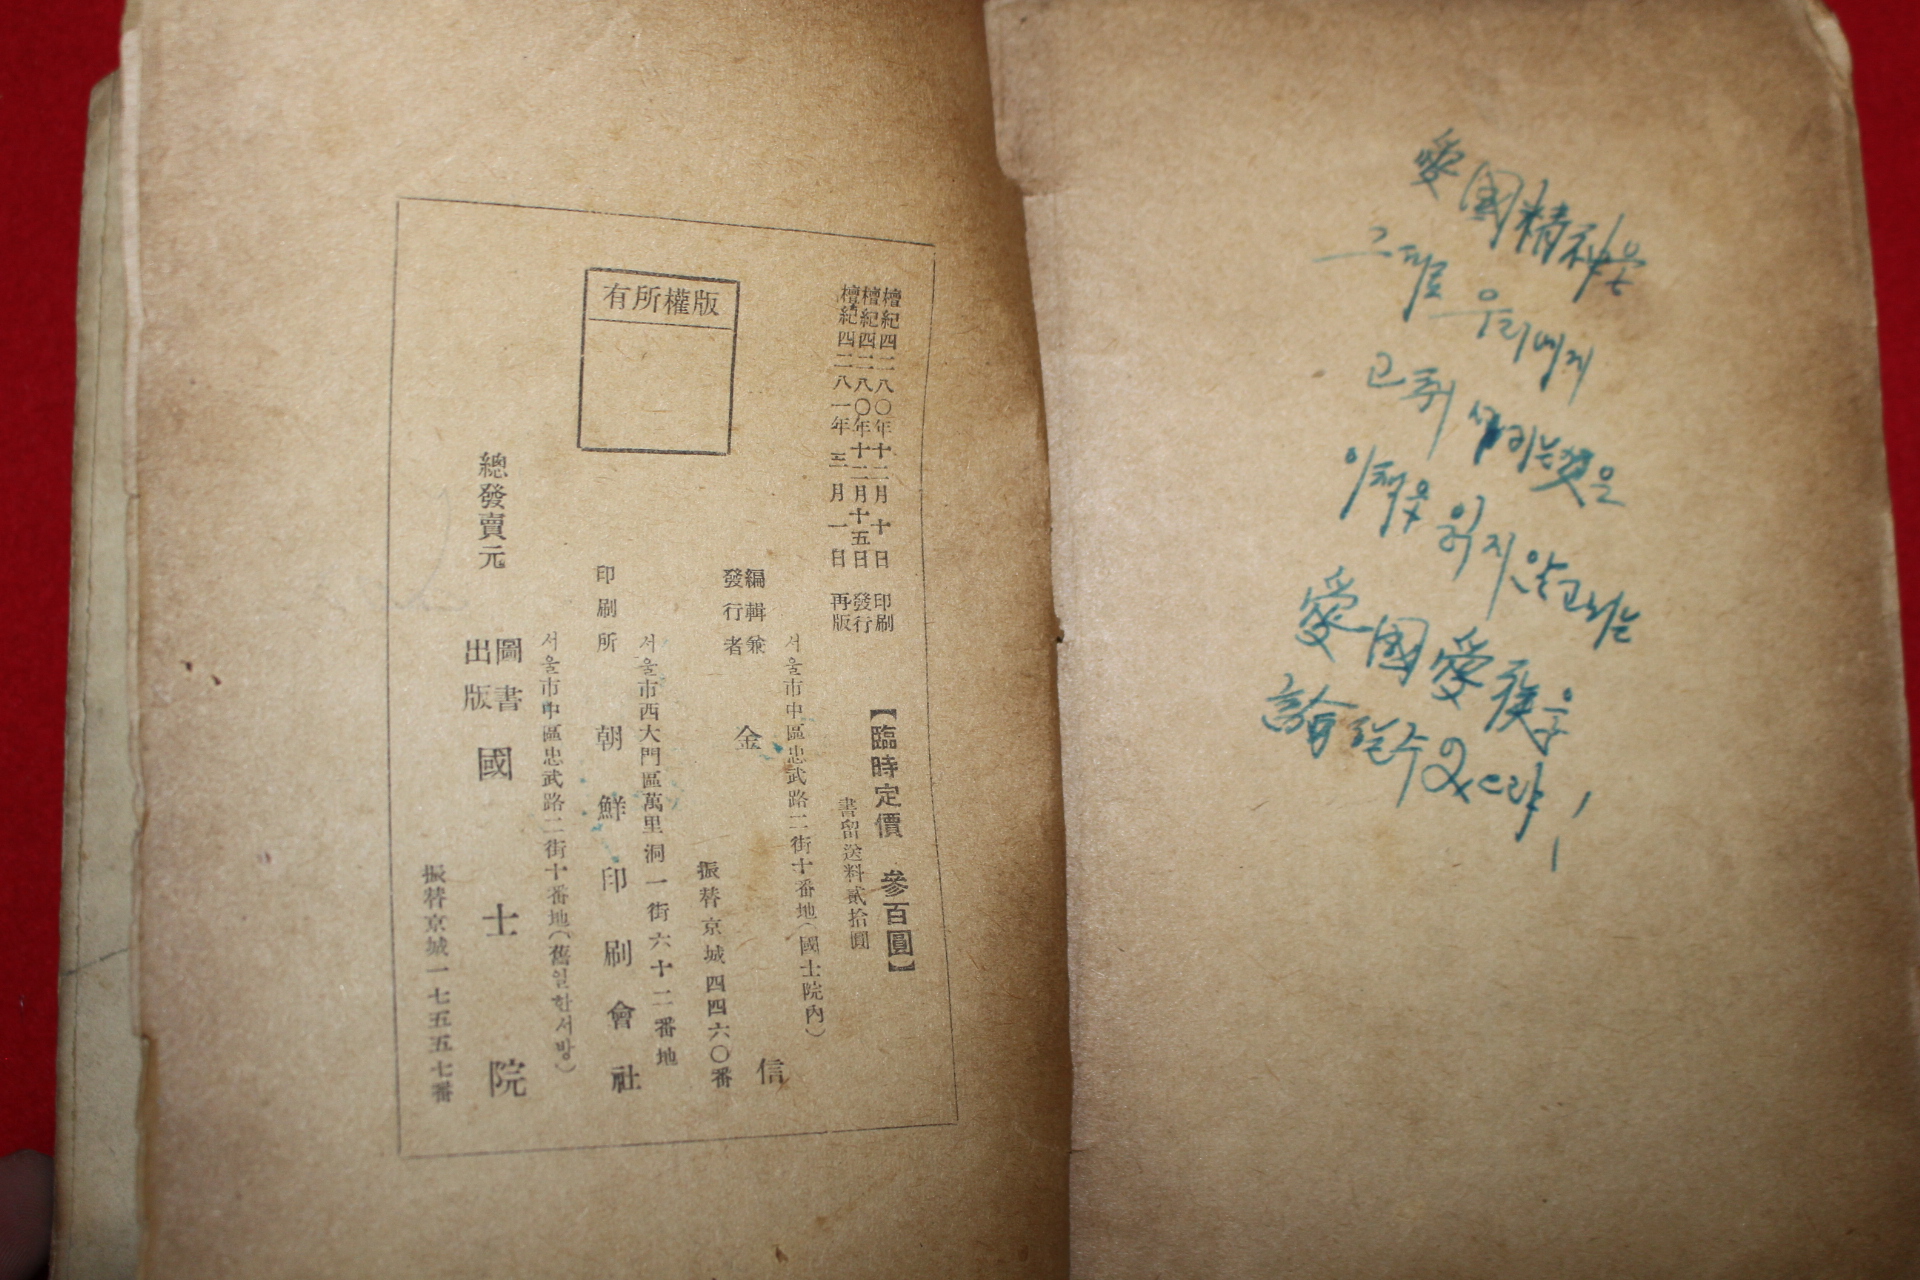 檀紀四二八〇年十二月十日 印刷
檀紀四二八〇年十二月十五日 發行
檀紀四二八一年 三月 一日 再版
【臨時定價 參百圓】
書留送料貳拾圓
서울市中區忠武路二街十番地(國士院內)
編輯兼
發行者 金 信
振替京城四四六〇番
서울市西大門區萬里洞一街六十二番地
印刷所 朝鮮印刷會社
서울市中區忠武路二街十番地(舊일한서방)
總發賣元 圖書
出版 國士院
振替京城一七五五七番
有所權版
愛國精神은
그대로 우리에게
고취 시키는것은
이책을 읽지않고는
愛國愛族을
論할수없다!